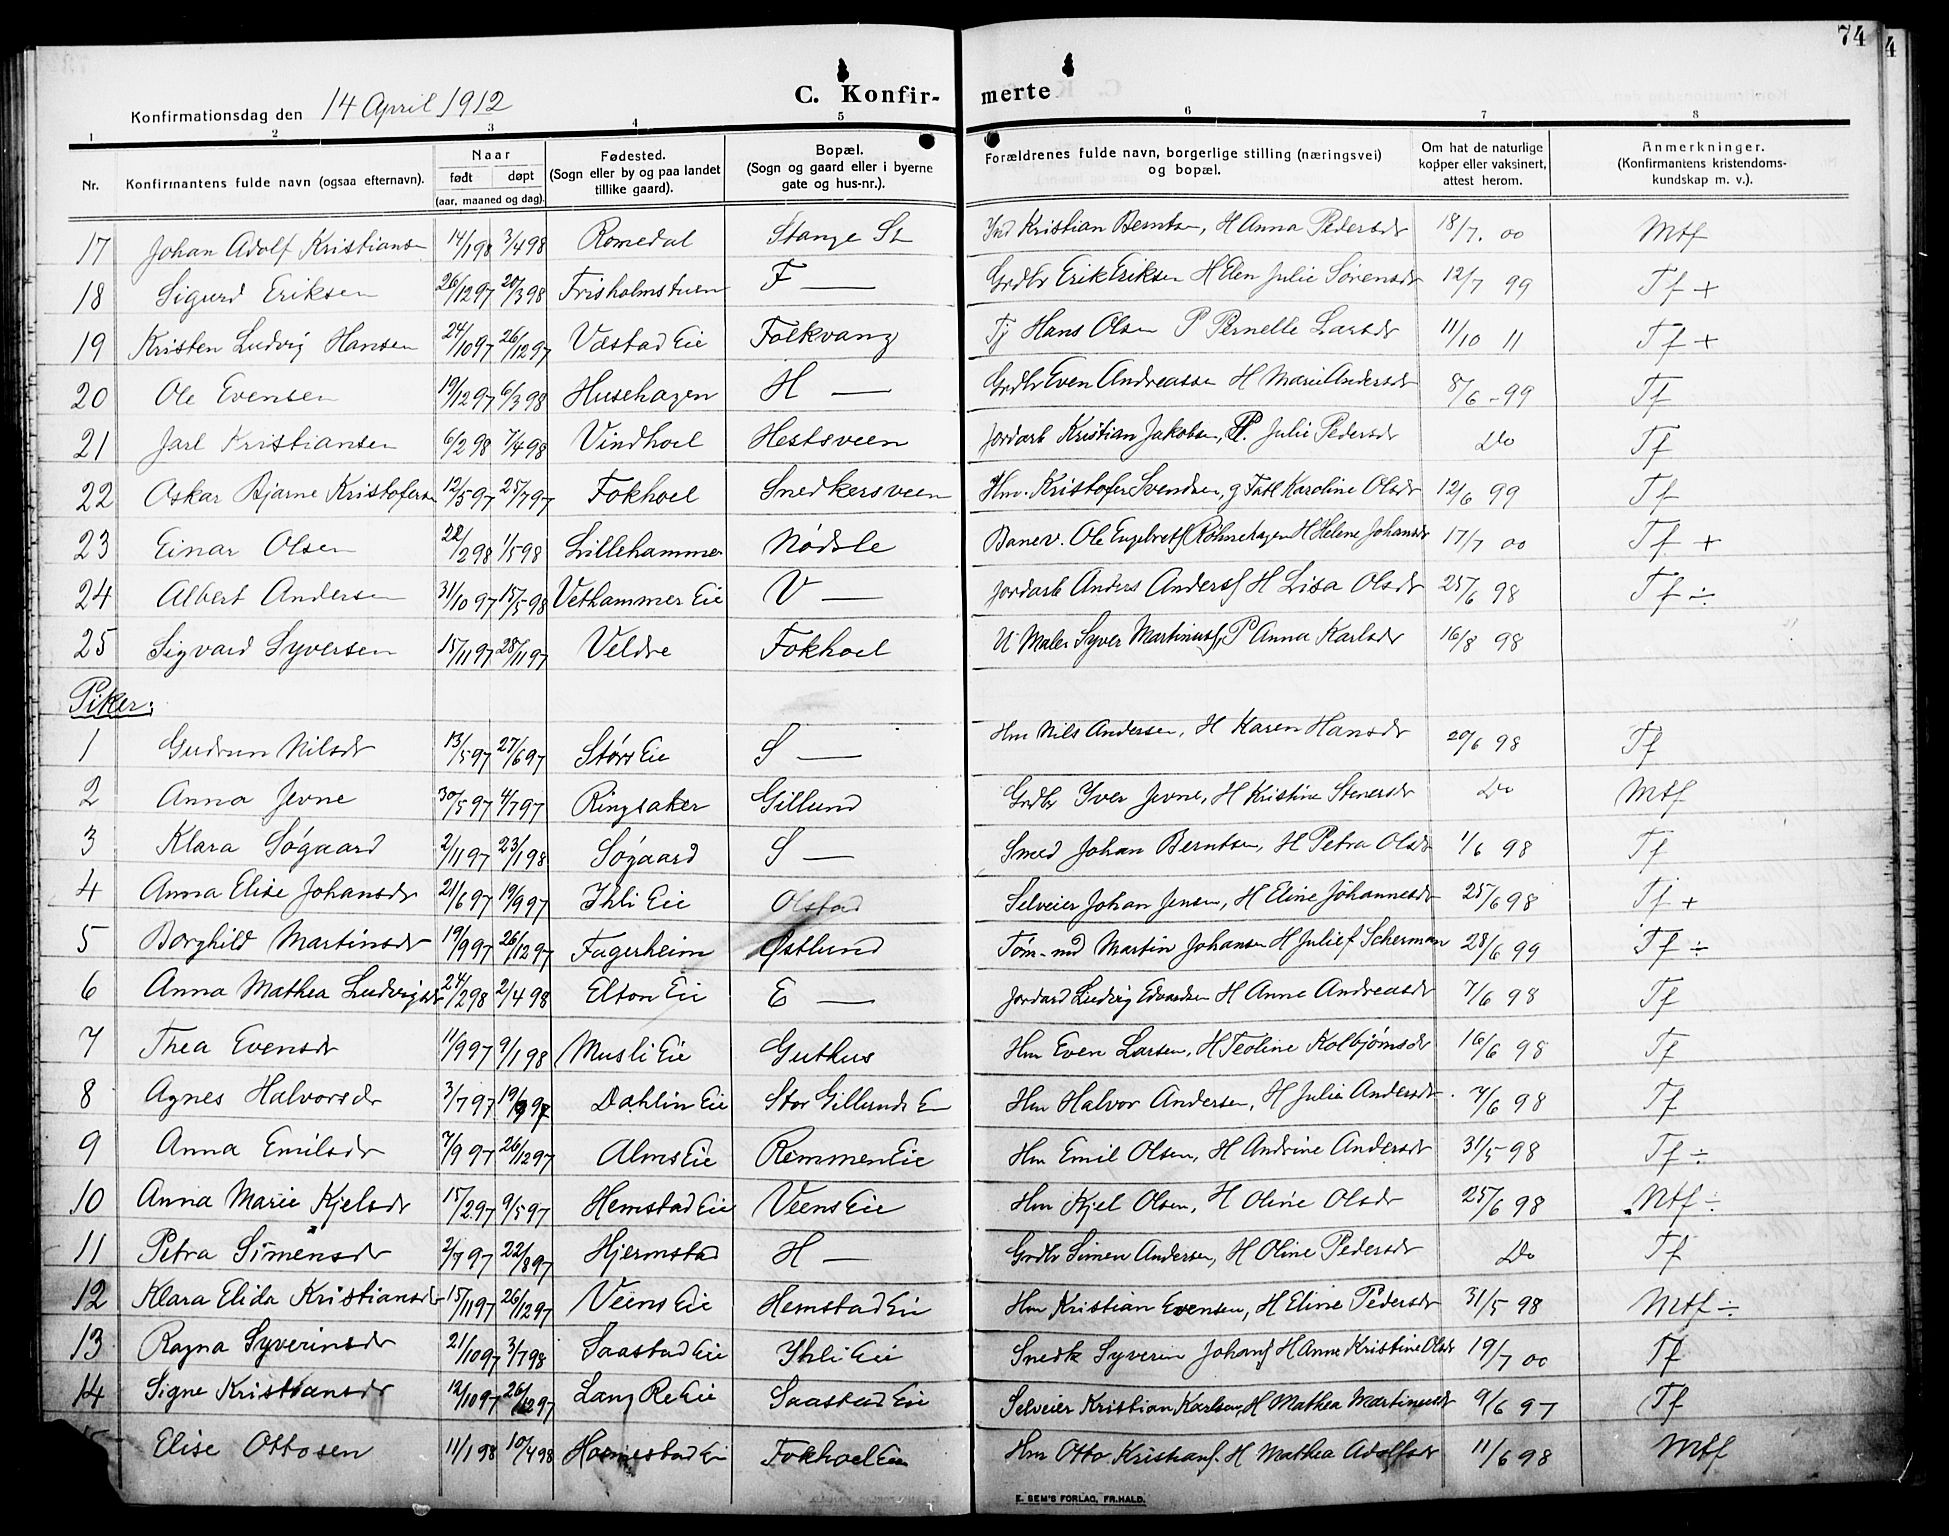 74
4
Konfirmationsdag den 14 April 1912
C. Konfir- merte
1 2 3 4 5 6 7 8
Nr. Konfirmantens fulde navn (ogsaa efternavn). Naar født døpt (aar, maaned og dag). Fødested. (Sogn eller by og paa landet tillike gaard). Bopæl. (Sogn og gaard eller i byerne gate og hus-nr.). Forældrenes fulde navn, borgerlige stilling (næringsvei) og bopæl. Om hat de naturlige kopper eller vaksinert, attest herom. Anmerkninger. (Konfirmantens kristendoms- kundskap m. v.).
17 Johan Adolf Kristiansen 14/1 98 3/4 98 Romedal Stange St Kristian Berntsen, H Anna Pedersdr 18/7. 00 Mtf
18 Sigurd Eriksen 26/12 97 20/3 98 Frisholmstuen F — Grdbr Erik Eriksen H Elen Julie Sørensdr 12/7 99 Tf +
19 Kristen Ludvig Hansen 24/10 97 26/12 97 Væstad Eie Folkvang Tj Hans Olsen P Pernelle Larsdr 11/10 11 Tf +
20 Ole Evensen 19/12 97 6/3 98 Husehagen H — Grdbr Even Andreassen H Marie Andersdr 8/6 - 99 Tf
21 Jarl Kristiansen 6/2 98 7/4 98 Vindhoel Hestsveen Jordarb Kristian Jakobsen, P. Julie Pedersdr Do Tf
22 Oskar Bjarne Kristofersen 12/5 97 25/7 97 Fokhoel Snedkersveen Hm. Kristofer Svendsen, g Fatl Karoline Olsdr 12/6 99 Tf
23 Einar Olsen 22/2 98 1/5 98 Lillehammer Nødsle Banev. Ole Engebretsf Røhnehagen H Helene Johansdr 17/7 00 Tf +
24 Albert Andersen 31/10 97 15/5 98 Vethammer Eie V — Jordarb Anders Andersf H Lisa Olsdr 25/6 98 Tf ÷
25 Sigvard Syversen 15/11 97 28/11 97 Veldre Fokhoel U Maler Syver Martinusf, P Anna Karlsdr 16/8 98
Piker:
1 Gudrun Nilsdr 13/5 97 27/6 97 Størs Eie S — Hm Nils Andersen, H Karen Hansdr 20/6 98 Tf
2 Anna Jevne 30/5 97 4/7 97 Ringsaker Gillund Grdbr Yver Jevne, H Kristine Stenersdr Do Mtf
3 Klara Søgaard 2/11 97 23/1 98 Søgaard S — Smed Johan Berntsen, H Petra Olsdr 1/6 98 Tf
4 Anna Elise Johansdr 21/6 97 19/9 97 Ihli Eie Olstad Selveier Johan Jensen, H Eline Johannesdr 25/6 98 Tf +
5 Borghild Martinsdr 19/9 97 26/12 97 Fagerheim Østlund Tøm-md Martin Johansen H Julie f Scherman 28/6 99 Tf ÷
6 Anna Mathea Ludvigsdr 24/2 98 2/4 98 Elton Eie E — Jordarb Ludvig Edvardsen H Anne Andreasdr 7/6 98 Tf
7 Thea Evensdr 11/9 97 9/1 98 Musli Eie Guthus Hm Even Larsen, H Teoline Kolbjørnsdr 16/6 98 Tf
8 Agnes Halvorsdr 3/7 97 19/9 97 Dahlin Eie Stor Gillunds E Hm Halvor Andersen, H Julie Andersdr. 7/6 98 Tf
9 Anna Emilsdr 7/9 97 26/12 97 Alms Eie Remmen Eie Hm Emil Olsen, H Andrine Andersdr 31/5 98 Tf ÷
10 Anna Marie Kjelsdr 15/2 97 9/5 97 Hemstad Eie Veens Eie Hm Kjel Olsen, H Oline Olsdr 25/6 98 Mtf ÷
11 Petra Simensdr 2/7 97 22/8 97 Hjermstad H — Grdbr Simen Andersen, H Oline Pedersdr Do Tf
12 Klara Elida Kristiansdr 15/11 97 26/12 97 Veens Eie Hemstad Eie Hm Kristian Evensen, H Eline Pedersdr 31/5 98 Mtf ÷
13 Ragna Syverinsdr 21/10 97 3/7 98 Saastad Eie Ihli Eie Snedk Syverin Johansf H Anne Kristine Olsdr 19/7 00 Tf
14 Signe Kristiansdr 12/10 97 26/12 97 Lang Re Eie Saastad Eie Selveier Kristian Karlsen, H Mathea Martinusdr 9/6 97 Tf
15 Elise Ottosen 11/1 98 10/4 98 Hosmestad Ei Fokhoel Eie Hm Otto Kristiansf. H Mathea Adolfsdr 11/6 98 Mtf
E. SEM'S FORLAG, FR.HALD.